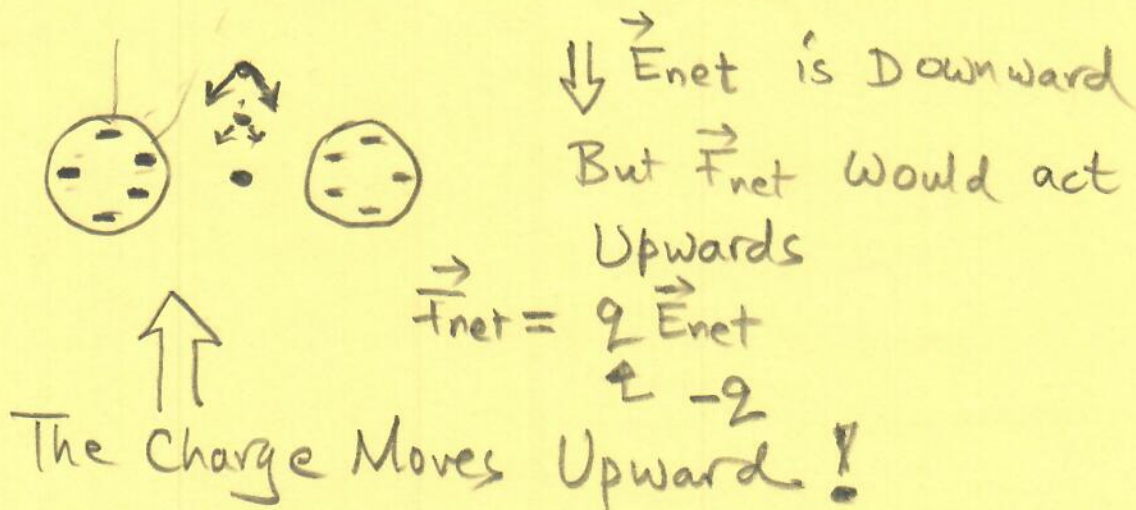 ⇓ E⃗net is Downward
But F⃗net Would act
Upwards
F⃗net = q E⃗net
↑ -q
The Charge Moves Upward!